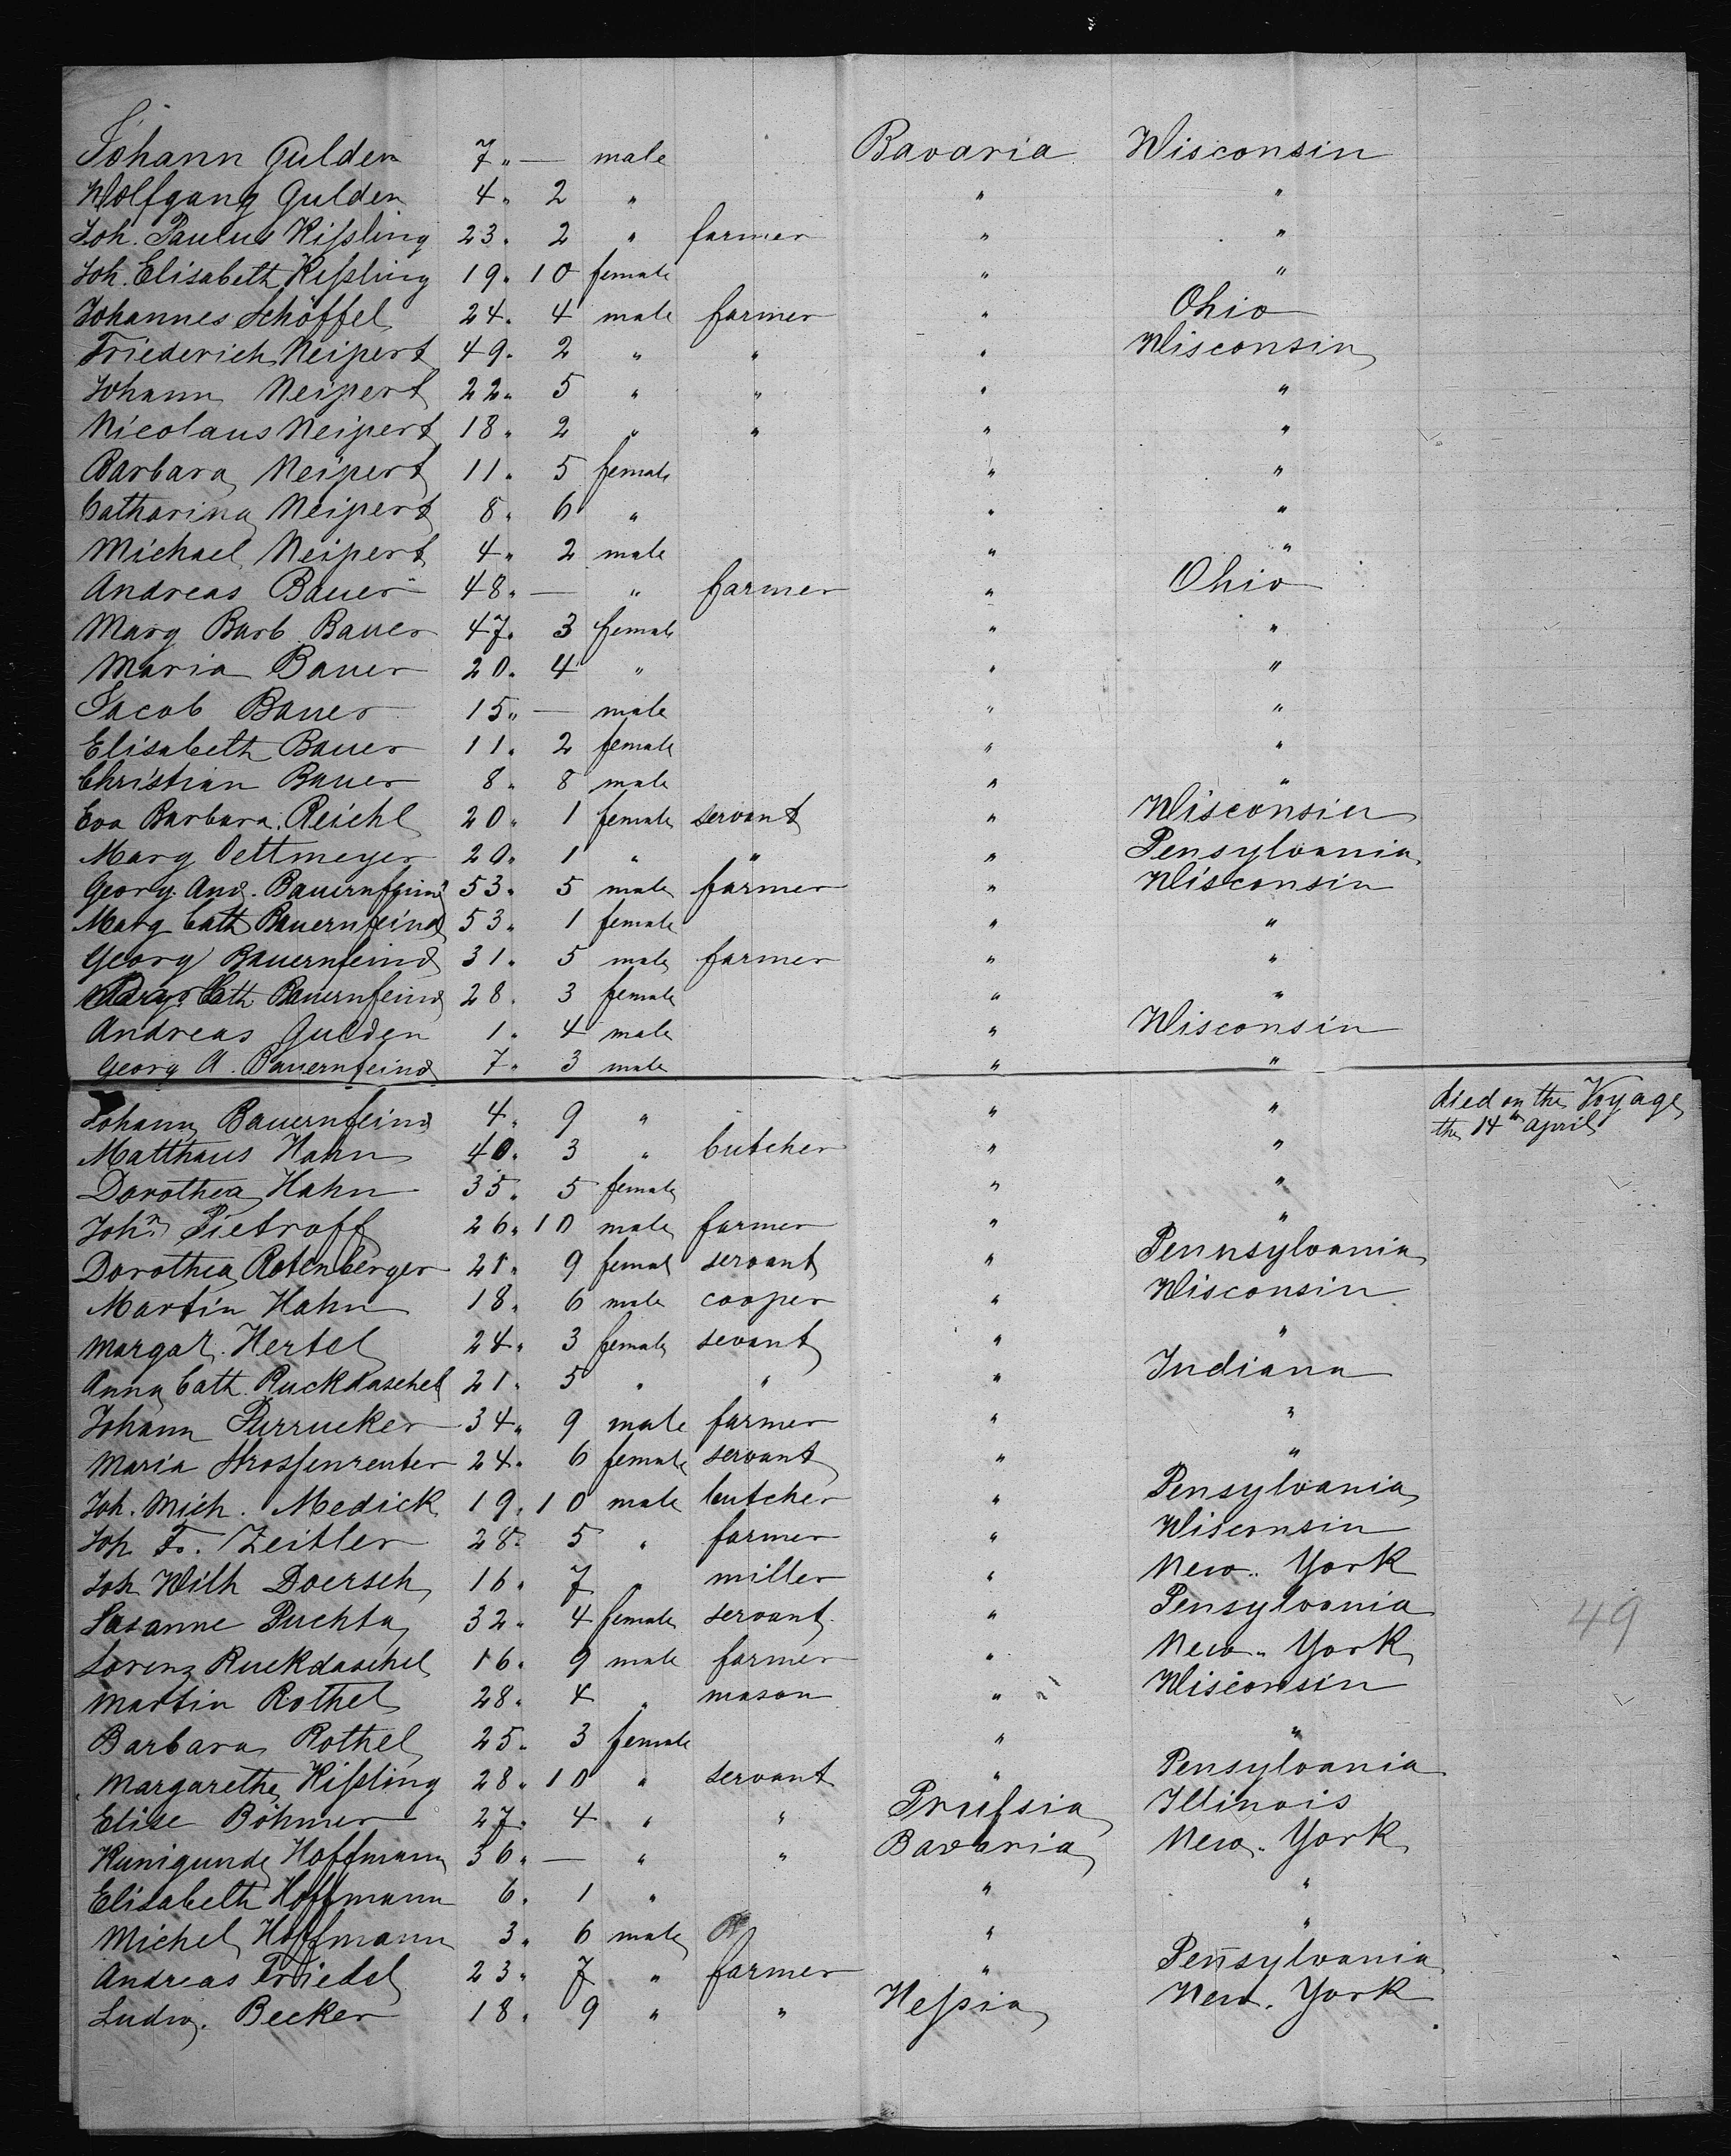 Johann Gulden 7 „ — male Bavaria Wisconsin
Wolfgang Gulden 4 „ 2 „ „ „
Joh. Paulus Kißling 23 „ 2 „ farmer „ „
Joh. Elisabeth Kißling 19 „ 10 female „ „
Johannes Schöffel 24 „ 4 male farmer „ Ohio
Friederich Neipert 49 „ 2 „ „ „ Wisconsin
Johann Neipert 22 „ 5 „ „ „ „
Nicolaus Neipert 18 „ 2 „ „ „ „
Barbara Neipert 11 „ 5 female „ „
Catharina Neipert 8 „ 6 „ „ „
Michael Neipert 4 „ 2 male „ „
Andreas Bauer 48 „ — „ farmer „ Ohio
Marg Barb. Bauer 47 „ 3 female „ „
Maria Bauer 20 „ 4 „ „ „
Jacob Bauer 15 „ — male „ „
Elisabeth Bauer 11 „ 2 female „ „
Christian Bauer 8 „ 8 male „ „
Eva Barbara Reichl 20 „ 1 female servant „ Wisconsin
Marg Dettmeyer 20 „ 1 „ „ „ Pensylvania
Georg And. Bauernfeind 53 „ 5 male farmer „ Wisconsin
Marg Cath Bauernfeind 53 „ 1 female „ „
Georg Bauernfeind 31 „ 5 male farmer „ „
Marg. Cath Bauernfeind 28 „ 3 female „ „
Andreas Gulden 1 „ 4 male „ Wisconsin
Georg A. Bauernfeind 7 „ 3 male „ „
Johann Bauernfeind 4 „ 9 „ „ „ died on the Voyage the 14th April
Matthaus Hahn 40 „ 3 „ butcher „ „
Dorothea Hahn 35 „ 5 female „ „
John Pietroff 26 „ 10 male farmer „ „
Dorothea Rotenberger 21 „ 9 femal servant „ Pennsylvania
Martin Hahn 18 „ 6 male cooper „ Wisconsin
Margar. Hertel 24 „ 3 female sevant „ „
Anna Cath. Ruckdaschel 21 „ 5 „ „ „ Indiana
Johann Purrucker 34 „ 9 male farmer „ „
Maria 24 „ 6 female servant „ „
Joh. Mich. Medick 19 „ 10 male butcher „ Pensylvania
Joh. Fr. Zeitler 28 „ 5 „ farmer „ Wisconsin
Joh Wilh Doersch 16 „ 7 „ miller „ New York
Susanne Puchta 32 „ 4 female servant „ Pensylvania
Lorenz Ruckdaschel 16 „ 9 male farmer „ New York
49
Martin Rothel 28 „ 4 „ mason „ Wisconsin
Barbara Rothel 25 „ 3 female „ „
Margarethe Kißling 28 „ 10 „ servant „ Pensylvania
Elise Böhmer 27 „ 4 „ „ Prußsia Illinois
Kunigunde Hoffmann 36 „ — „ „ Bavaria New York
Elisabeth Hoffmann 6 „ 1 „ „ „
Michel Hoffmann 3 „ 6 male „ „
Andreas Friedel 23 „ 7 „ farmer „ Pensylvania
Ludw. Becker 18 „ 9 „ „ Heßia New York